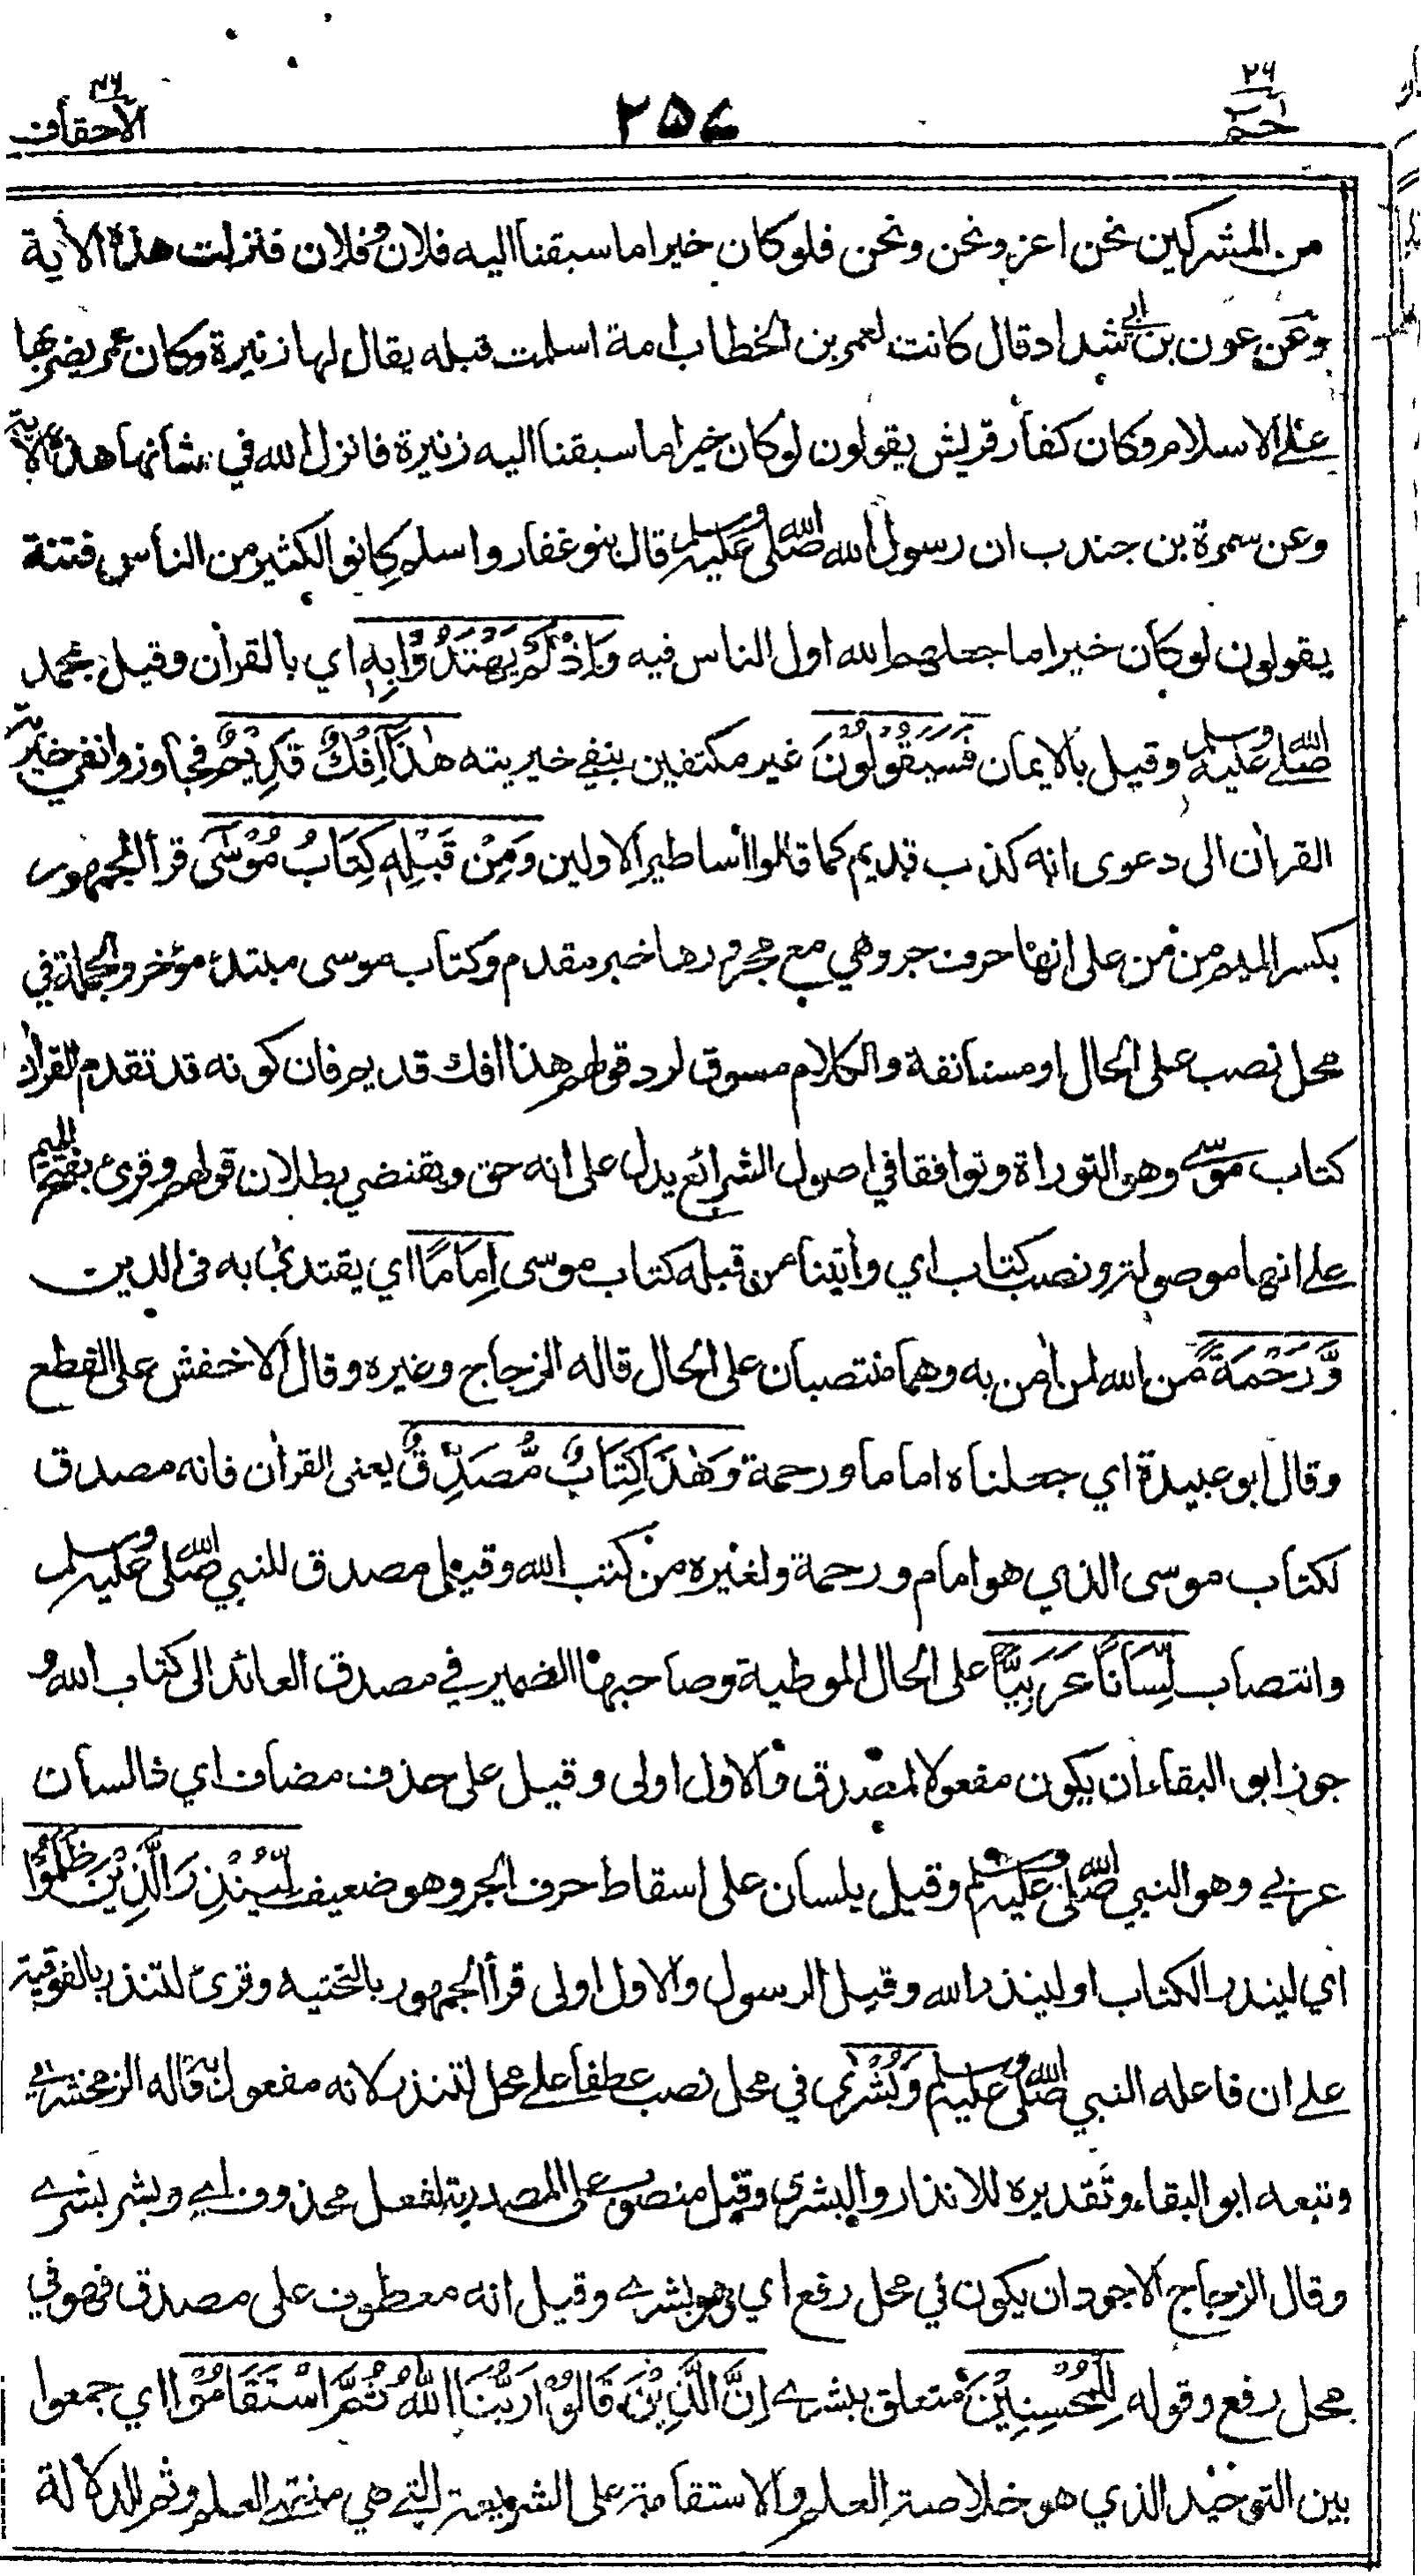 ٢٦
حم
٢٥٧
٤٦
الأحقاف
من المشركين نحن اعز ونحن ونحن فلو كان خيرا ما سبقنا اليه فلان وفلان فنزلت هذه الأية
وعن عون بن ابي شداد قال كانت لعمر بن الخطاب امة اسلمت قبله يقال لها زنيرة وكان عمر يضربها
على الاسلام وكان كفار قريش يقولون لو كان خيرا ما سبقنا اليه زنيرة فانزل الله في شانها هذه الأية
وعن سمرة بن جندب ان رسول الله صلى الله عليه وسلم قال بنو غفار واسلم كانوا الكثير من الناس فتنة
يقولون لو كان خيرا ما جعلهم الله اول الناس فيه وَاِذْ لَمْ يَهْتَدُوْا بِهٖ اي بالقرأن وقيل بمحمد
صلى الله عليه وسلم وقيل بالايمان فَسَيَقُوْلُوْنَ غير مكتفين بنفي خيريته هٰذَا اِفْكٌ قَدِيْمٌ فجاوزوا نفي خيرية
القرأن الى دعوى انه كذب قديم كما قالوا أساطير الاولين وَمِنْ قَبْلِهٖ كِتَابُ مُوْسٰى قرأ الجمهور
بكسر الميم من من على انها حرف جر وهي مع مجرورها خبر مقدم وكتاب موسى مبتدء مؤخر والجملة في
محل نصب على الحال او مستانفة والكلام مسوق لرد قولهم هذا افك قديم فان كونه قد تقدم القرأن
كتاب موسى وهو التوراة وتوافقا في اصول الشرائع يدل على انه حق ويقتضي بطلان قولهم وقرئ بفتح الميم
على انها موصولة ونصب كتاب اي وأتينا من قبله كتاب موسى اِمَامًا اي يقتدى به فى الدين
وَّرَحْمَةً من الله لمن أمن به وهما منتصبان على الحال قاله الزجاج وغيره وقال الاخفش على القطع
وقال ابو عبيدة اي جعلناه اماما ورحمة وَهٰذَا كِتَابٌ مُّصَدِّقٌ يعنى القرأن فانه مصدق
لكتاب موسى الذي هو امام ورحمة ولغيره من كتب الله وقيل مصدق للنبي صلى الله عليه وسلم
وانتصاب لِّسَانًا عَرَبِيًّا على الحال الموطية وصاحبها الضمير في مصدق العائد الى كتاب الله و
جوز ابو البقاء ان يكون مفعولا لمصدق والاول اولى وقيل على حذف مضاف اي ذا لسان
عربي وهو النبي صلى الله عليه وسلم وقيل بلسان على اسقاط حرف الجر وهو ضعيف لِّيُنْذِرَ الَّذِيْنَ ظَلَمُوْا
اي لينذر الكتاب او لينذر الله وقيل الرسول والاول اولى قرأ الجمهور بالتحتيه وقرئ لتنذر بالفوقية
على ان فاعله النبي صلى الله عليه وسلم وَبُشْرٰى في محل نصب عطفا على محل لتنذر لانه مفعول به قاله الزمخشري
وتبعه ابو البقاء وتقديره للانذار والبشرى وقيل منصوب على المصدرية لفعل محذوف اي وبشر بشرى
وقال الزجاج الاجود ان يكون في محل رفع اي هو بشرى وقيل انه معطوف على مصدق فهو في
محل رفع وقوله لِلْمُحْسِنِيْنَ متعلق ببشرى اِنَّ الَّذِيْنَ قَالُوْا رَبُّنَا اللّٰهُ ثُمَّ اسْتَقَامُوْا اي جمعوا
بين التوحيد الذي هو خلاصة العلم والاستقامة على الشريعة التي هي منتهى العلم وثم للدلالة